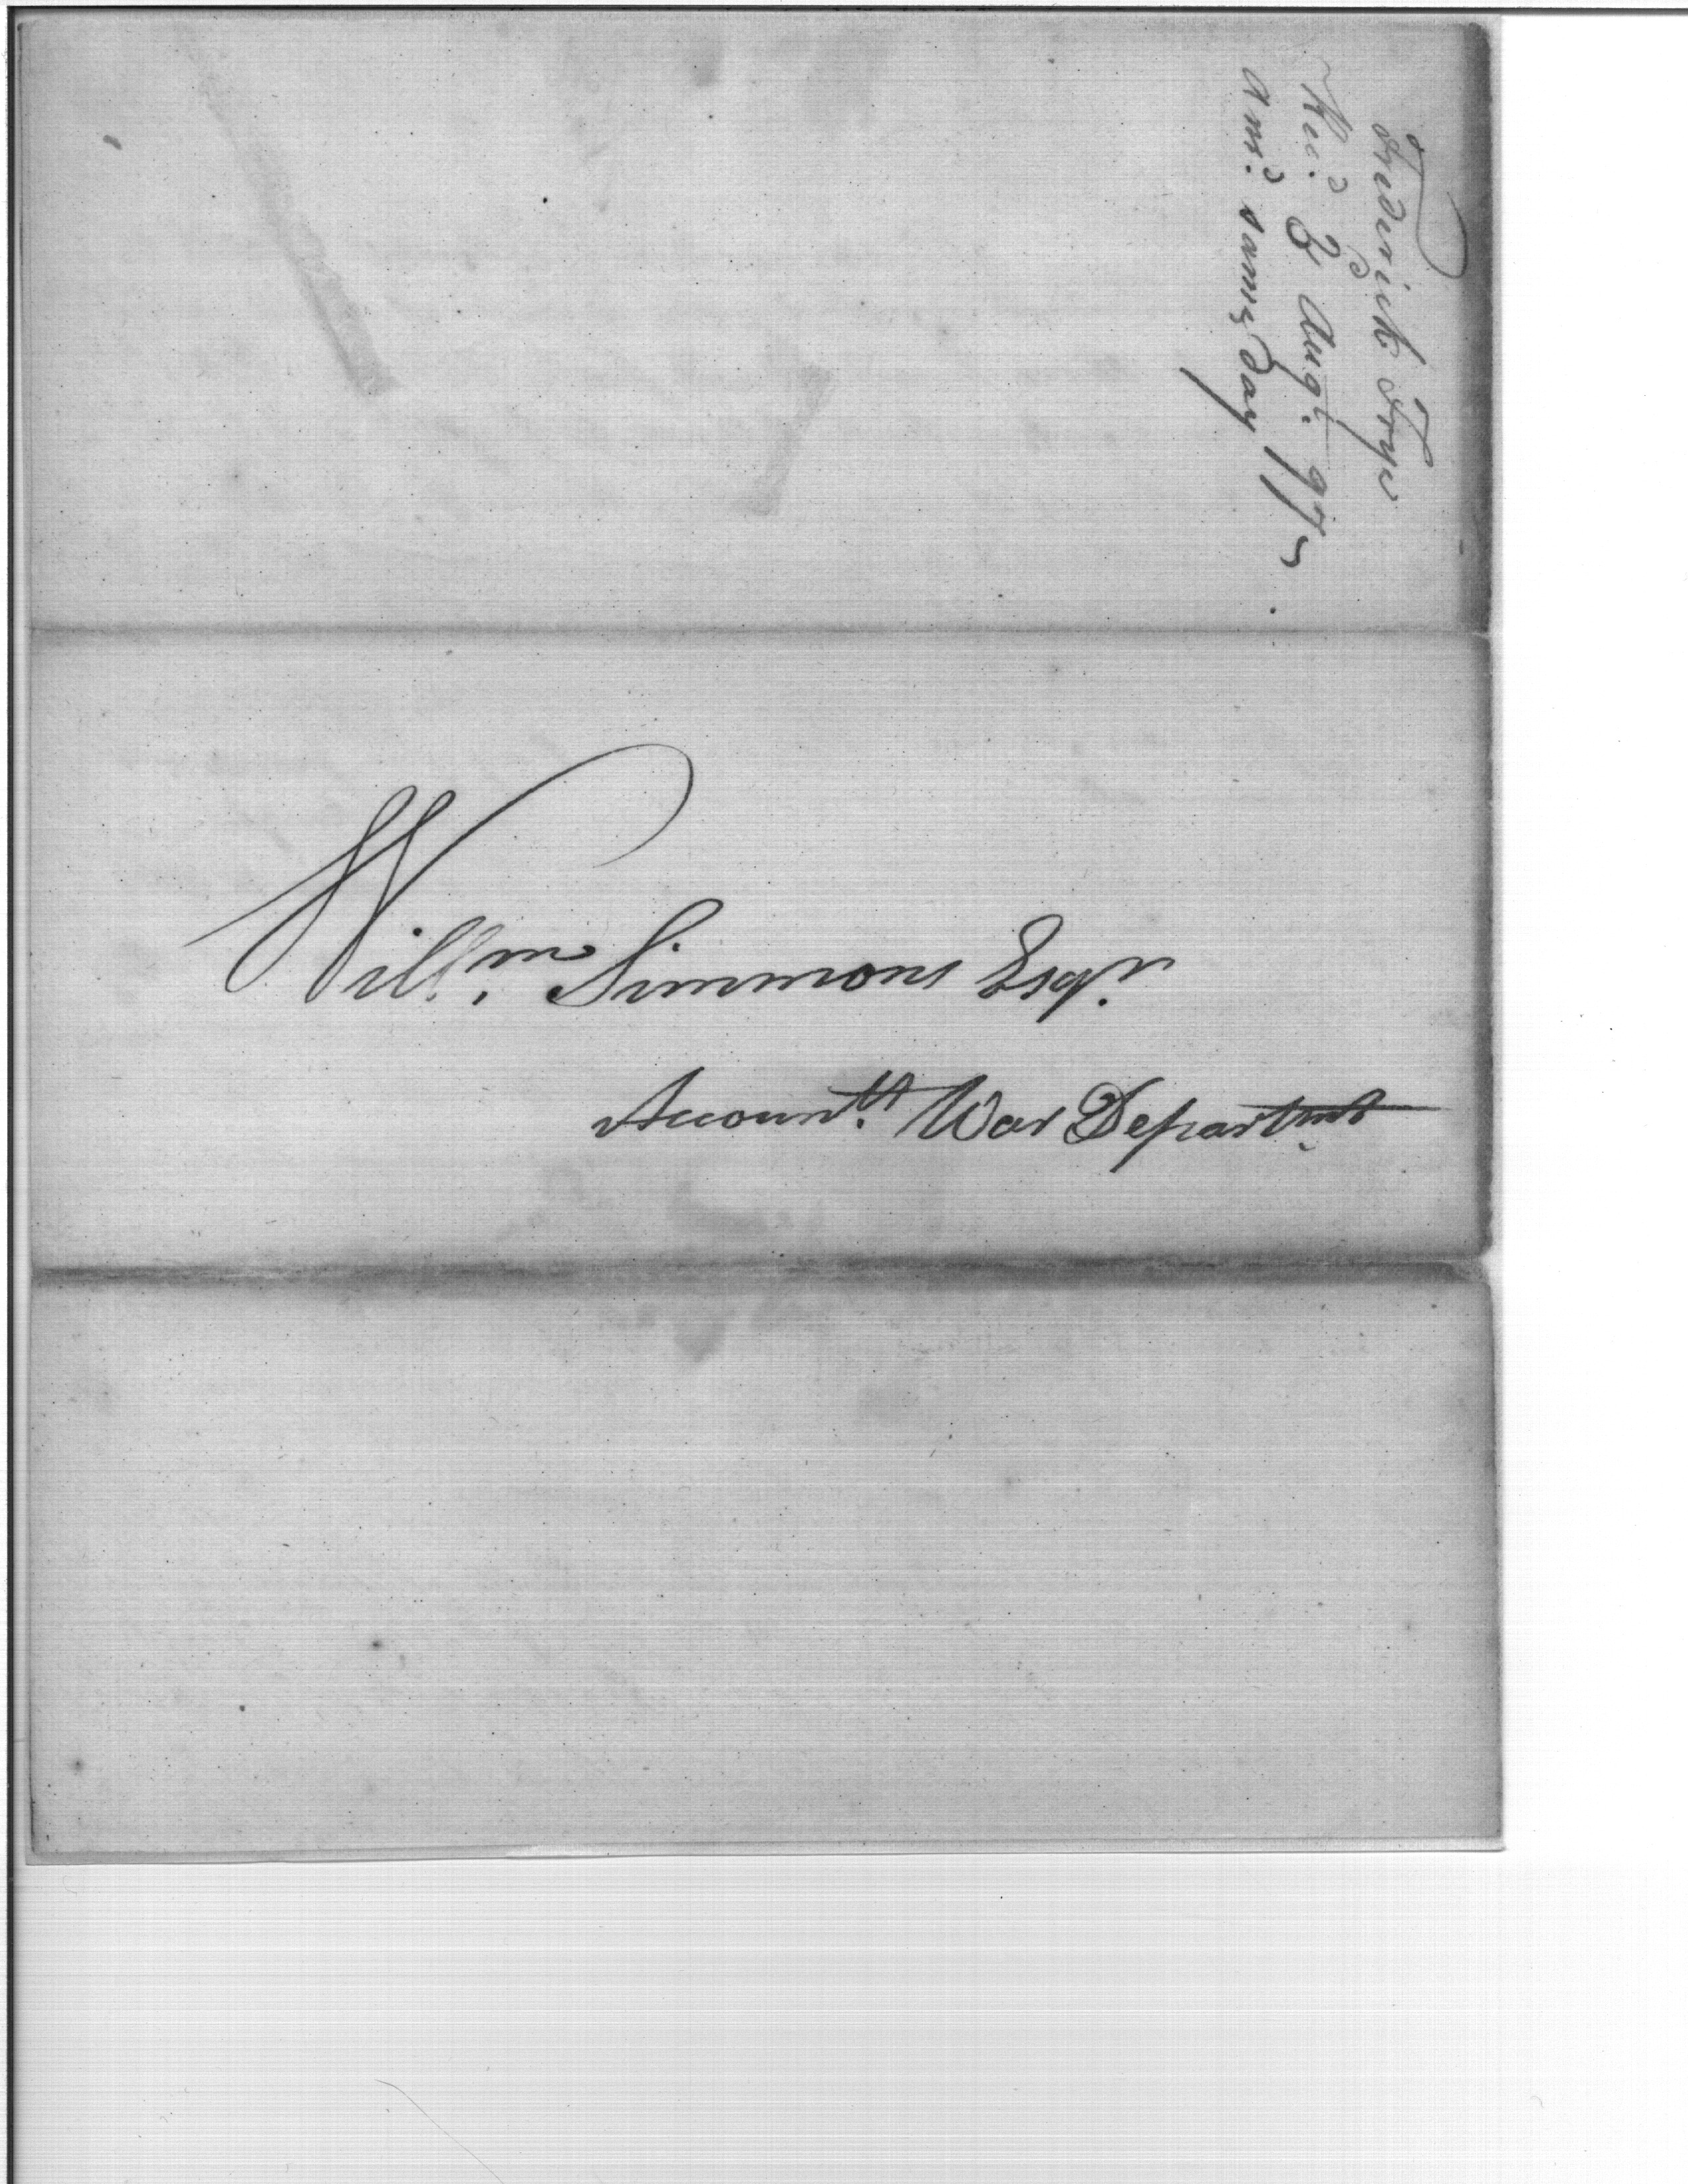 Frederick Frye
Rec.d 3 Aug.t 97
ans.d same day
Will.m Simmons Esq.r
Account.tt War Departmt